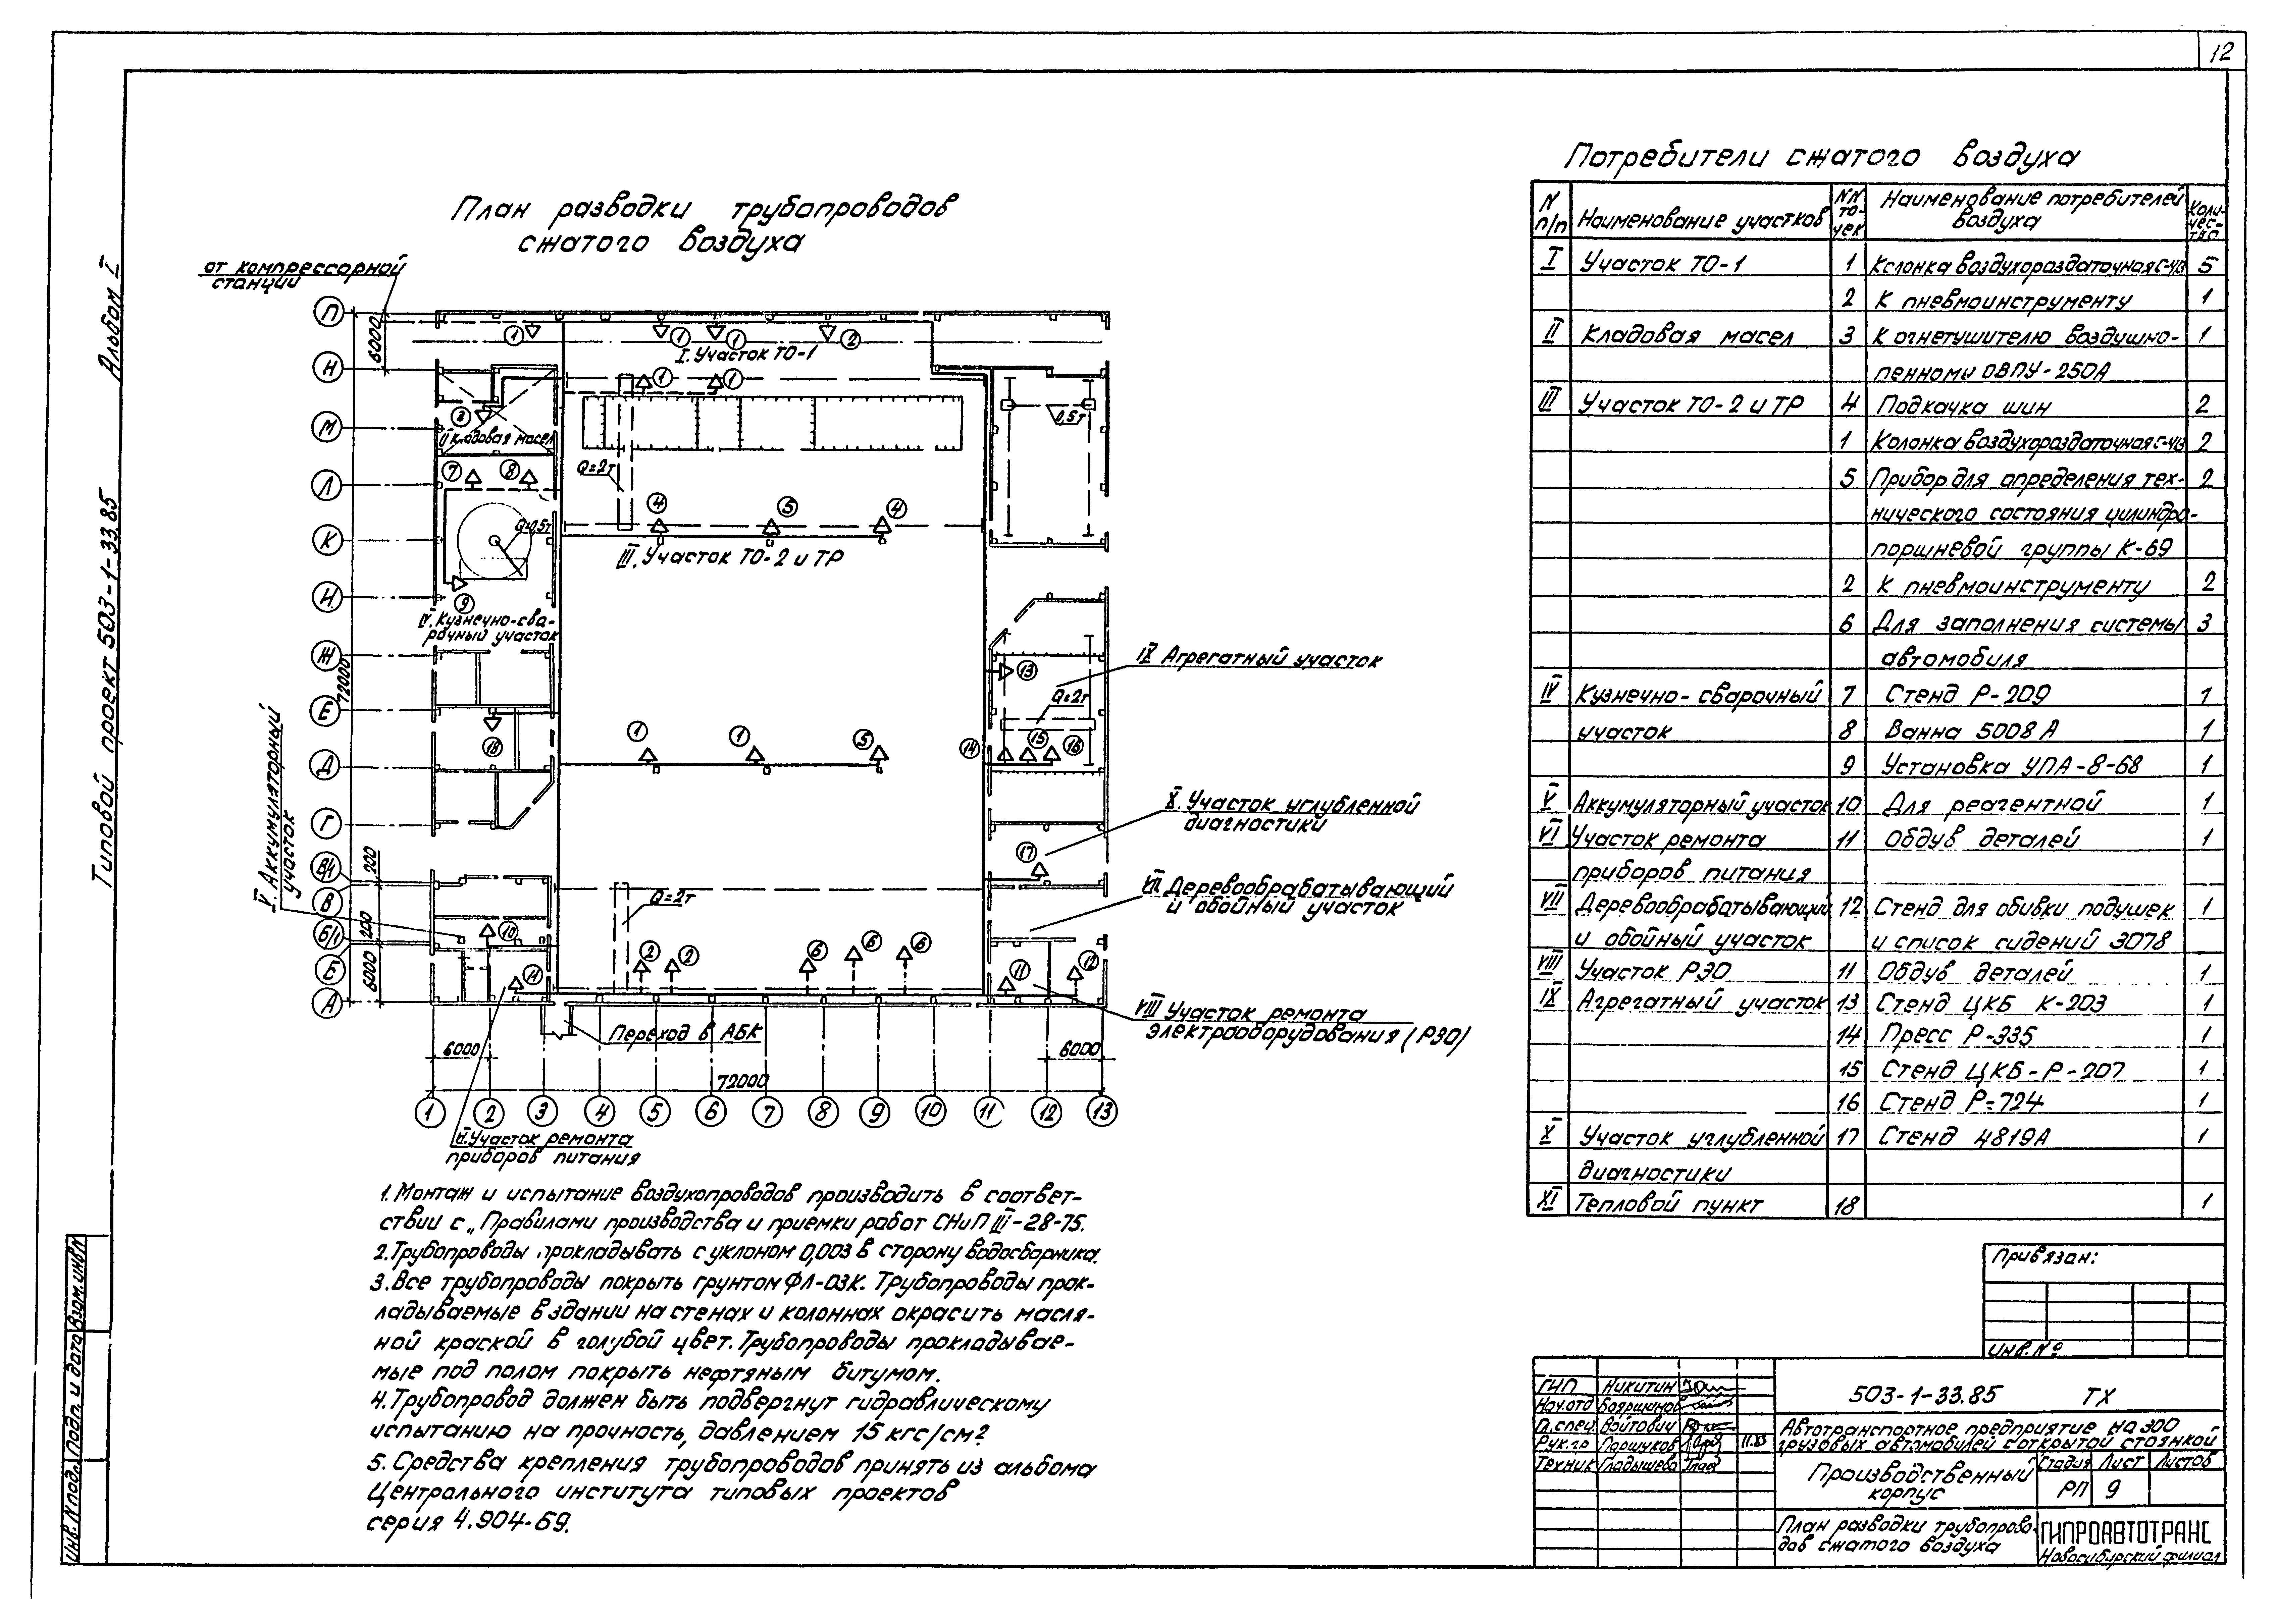 12
Типовой проект 503-1-33.85 Альбом I
План разводки трубопроводов
сжатого воздуха
от компрессорной
станции
П
Н
М
Л
К
И
Ж
Е
Д
Г
В/1
В
Б/1
Б
А
6000
72000
200
200
6000
1
1
1
2
I. Участок ТО-1
1
1
3
II Кладовая масел
0,5т
7
8
Q=2т
4
5
4
Q=0,5т
III. Участок ТО-2 и ТР
9
IV. Кузнечно-сва-
рочный участок
13
IX Агрегатный участок
Q=2т
18
1
1
5
14
15
16
V. Аккумуляторный
участок
X. Участок углубленной
диагностики
17
VII. Деревообрабатывающий
и обойный участок
Q=2т
10
11
2
2
6
6
6
11
12
VIII Участок ремонта
электрооборудования (РЭО)
Переход в АБК
6000
6000
72000
1 2 3 4 5 6 7 8 9 10 11 12 13
VI. Участок ремонта
приборов питания
1. Монтаж и испытание воздухопроводов производить в соответ-
ствии с „Правилами производства и приемки работ СНиП III-28-75.
2. Трубопроводы прокладывать с уклоном 0,003 в сторону водосборника.
3. Все трубопроводы покрыть грунтом ФЛ-03К. Трубопроводы прок-
ладываемые в здании на стенах и колоннах окрасить масля-
ной краской в голубой цвет. Трубопроводы прокладывае-
мые под полом покрыть нефтяным битумом.
4. Трубопровод должен быть подвергнут гидравлическому
испытанию на прочность, давлением 15 кгс/см².
5. Средства крепления трубопроводов принять из альбома
Центрального института типовых проектов
серия 4.904-69.
Потребители сжатого воздуха
N п/п Наименование участков NN то-чек Наименование потребителей воздуха Коли-чес-тво
I Участок ТО-1 1 Колонка воздухораздаточная С-413 5
2 К пневмоинструменту 1
II Кладовая масел 3 К огнетушителю воздушно- 1
пенному ОВПУ-250А
III Участок ТО-2 и ТР 4 Подкачка шин 2
1 Колонка воздухораздаточная С-413 2
5 Прибор для определения тех- 2
нического состояния цилиндро-
поршневой группы К-69
2 К пневмоинструменту 2
6 Для заполнения системы 3
автомобиля
IV Кузнечно-сварочный 7 Стенд Р-209 1
участок 8 Ванна 5008 А 1
9 Установка УПА-8-68 1
V Аккумуляторный участок 10 Для реагентной 1
VI Участок ремонта 11 Обдув деталей 1
приборов питания
VII Деревообрабатывающий 12 Стенд для обивки подушек 1
и обойный участок и список сидений Э078
VIII Участок РЭО 11 Обдув деталей 1
IX Агрегатный участок 13 Стенд ЦКБ К-203 1
14 Пресс Р-335 1
15 Стенд ЦКБ-Р-207 1
16 Стенд Р-724 1
X Участок углубленной 17 Стенд 4819А 1
диагностики
XI Тепловой пункт 18 1
Привязан:
Инв. №
ГИП Никитин
Нач.отд Бояршинов
Гл.спец. Войтович
Рук.гр Паршуков 11.83
Техник Гладышева
503-1-33.85 ТХ
Автотранспортное предприятие на 300
грузовых автомобилей с открытой стоянкой
Производственный
корпус
Стадия Лист Листов
РП 9
План разводки трубопрово-
дов сжатого воздуха
ГИПРОАВТОТРАНС
Новосибирский филиал
Инв. N подл. Подп. и дата Взам. инв. N